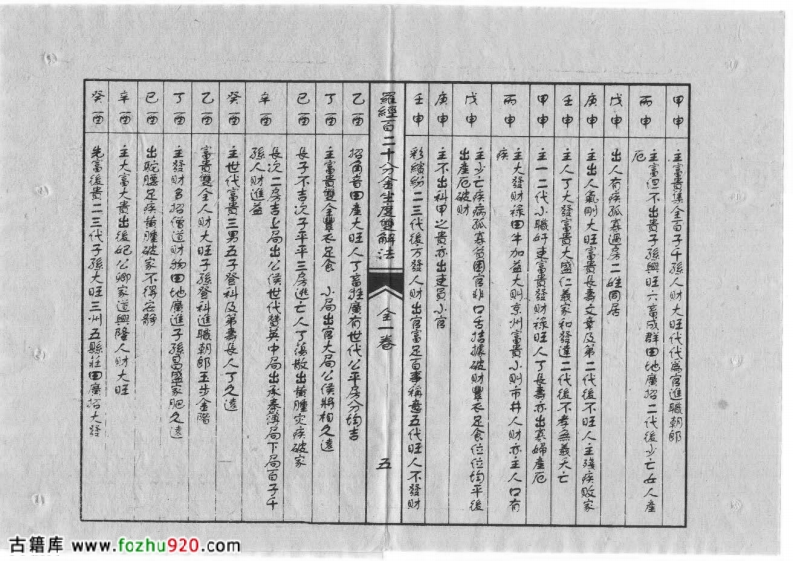 甲申　主富貴集全百子千孫人財大旺代代爲官進職朝郎
丙申　主富但不出貴子孫興旺六畜成群田地廣招二代後少亡女人產
厄
戊申　出人有疾孤寡過房二姓同居
庚申　主出人氣剛大旺富貴長壽文章及第二代後不旺人主殘疾敗家
壬申　主人丁大發富貴大盛仁義家和發達二代後不孝無義夭亡
甲申　主一二代小職奸吏富貴發財祿旺人丁長壽亦出寡婦產厄
丙申　主大發財祿田牛加益大則京州富貴小則市井人財亦主人口有
疾
戊申　主少亡疾病孤寡貧困官非口舌拮據破財豐衣足食位位均平後
出產厄破財
庚申　主不出科甲之貴亦出吏員小官
壬申　彩繽紛二三代後方發人財出官富足百事稱意五代旺人不發財
羅經百二十分金坐度雙解法　全一卷　五
乙酉　招角音田產大旺人丁畜牲廣有世代公平房分均吉
丁酉　主富貴雙全豐衣足食　小局出官大局公侯將相久遠
己酉　長子不吉次子平平三房逃亡人丁落散出黃腫災疾破家
辛酉　長次二房吉上局出公侯世代賢英中局出承奏簿局下局百子千
孫人財進益
癸酉　主世代富貴三男五子登科及第壽長人丁久遠
乙酉　富貴雙全人財大旺子孫登科進職朝郎玉步金階
丁酉　主發財多招僧道財物田地廣進子孫昌盛家肥久遠
己酉　出駝腰足疾黃腫破家不得安靜
辛酉　主大富大貴出後妃公卿家道興隆人財大旺
癸酉　先富後貴二三代子孫大旺三州五縣莊田廣招大發
古籍库 www.fozhu920.com